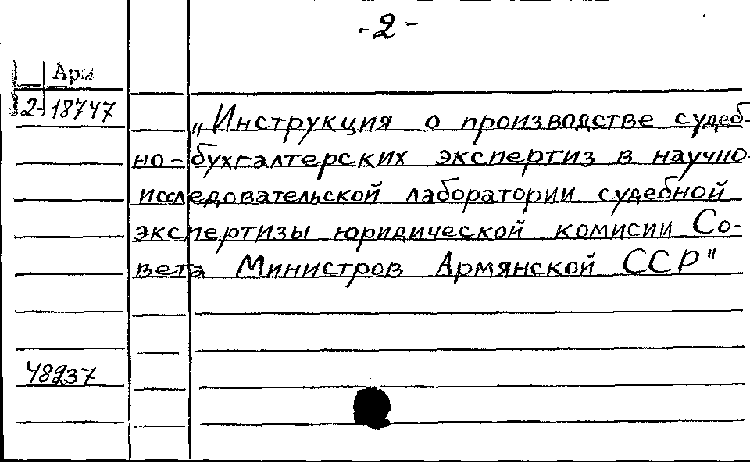 -2-
Арм
2-18747
„Инструкция о производстве судеб-
но-бухгалтерских экспертиз в научно-
исследовательской лаборатории судебной
экспертизы юридической комисии Со-
вета Министров Армянской ССР"
48937